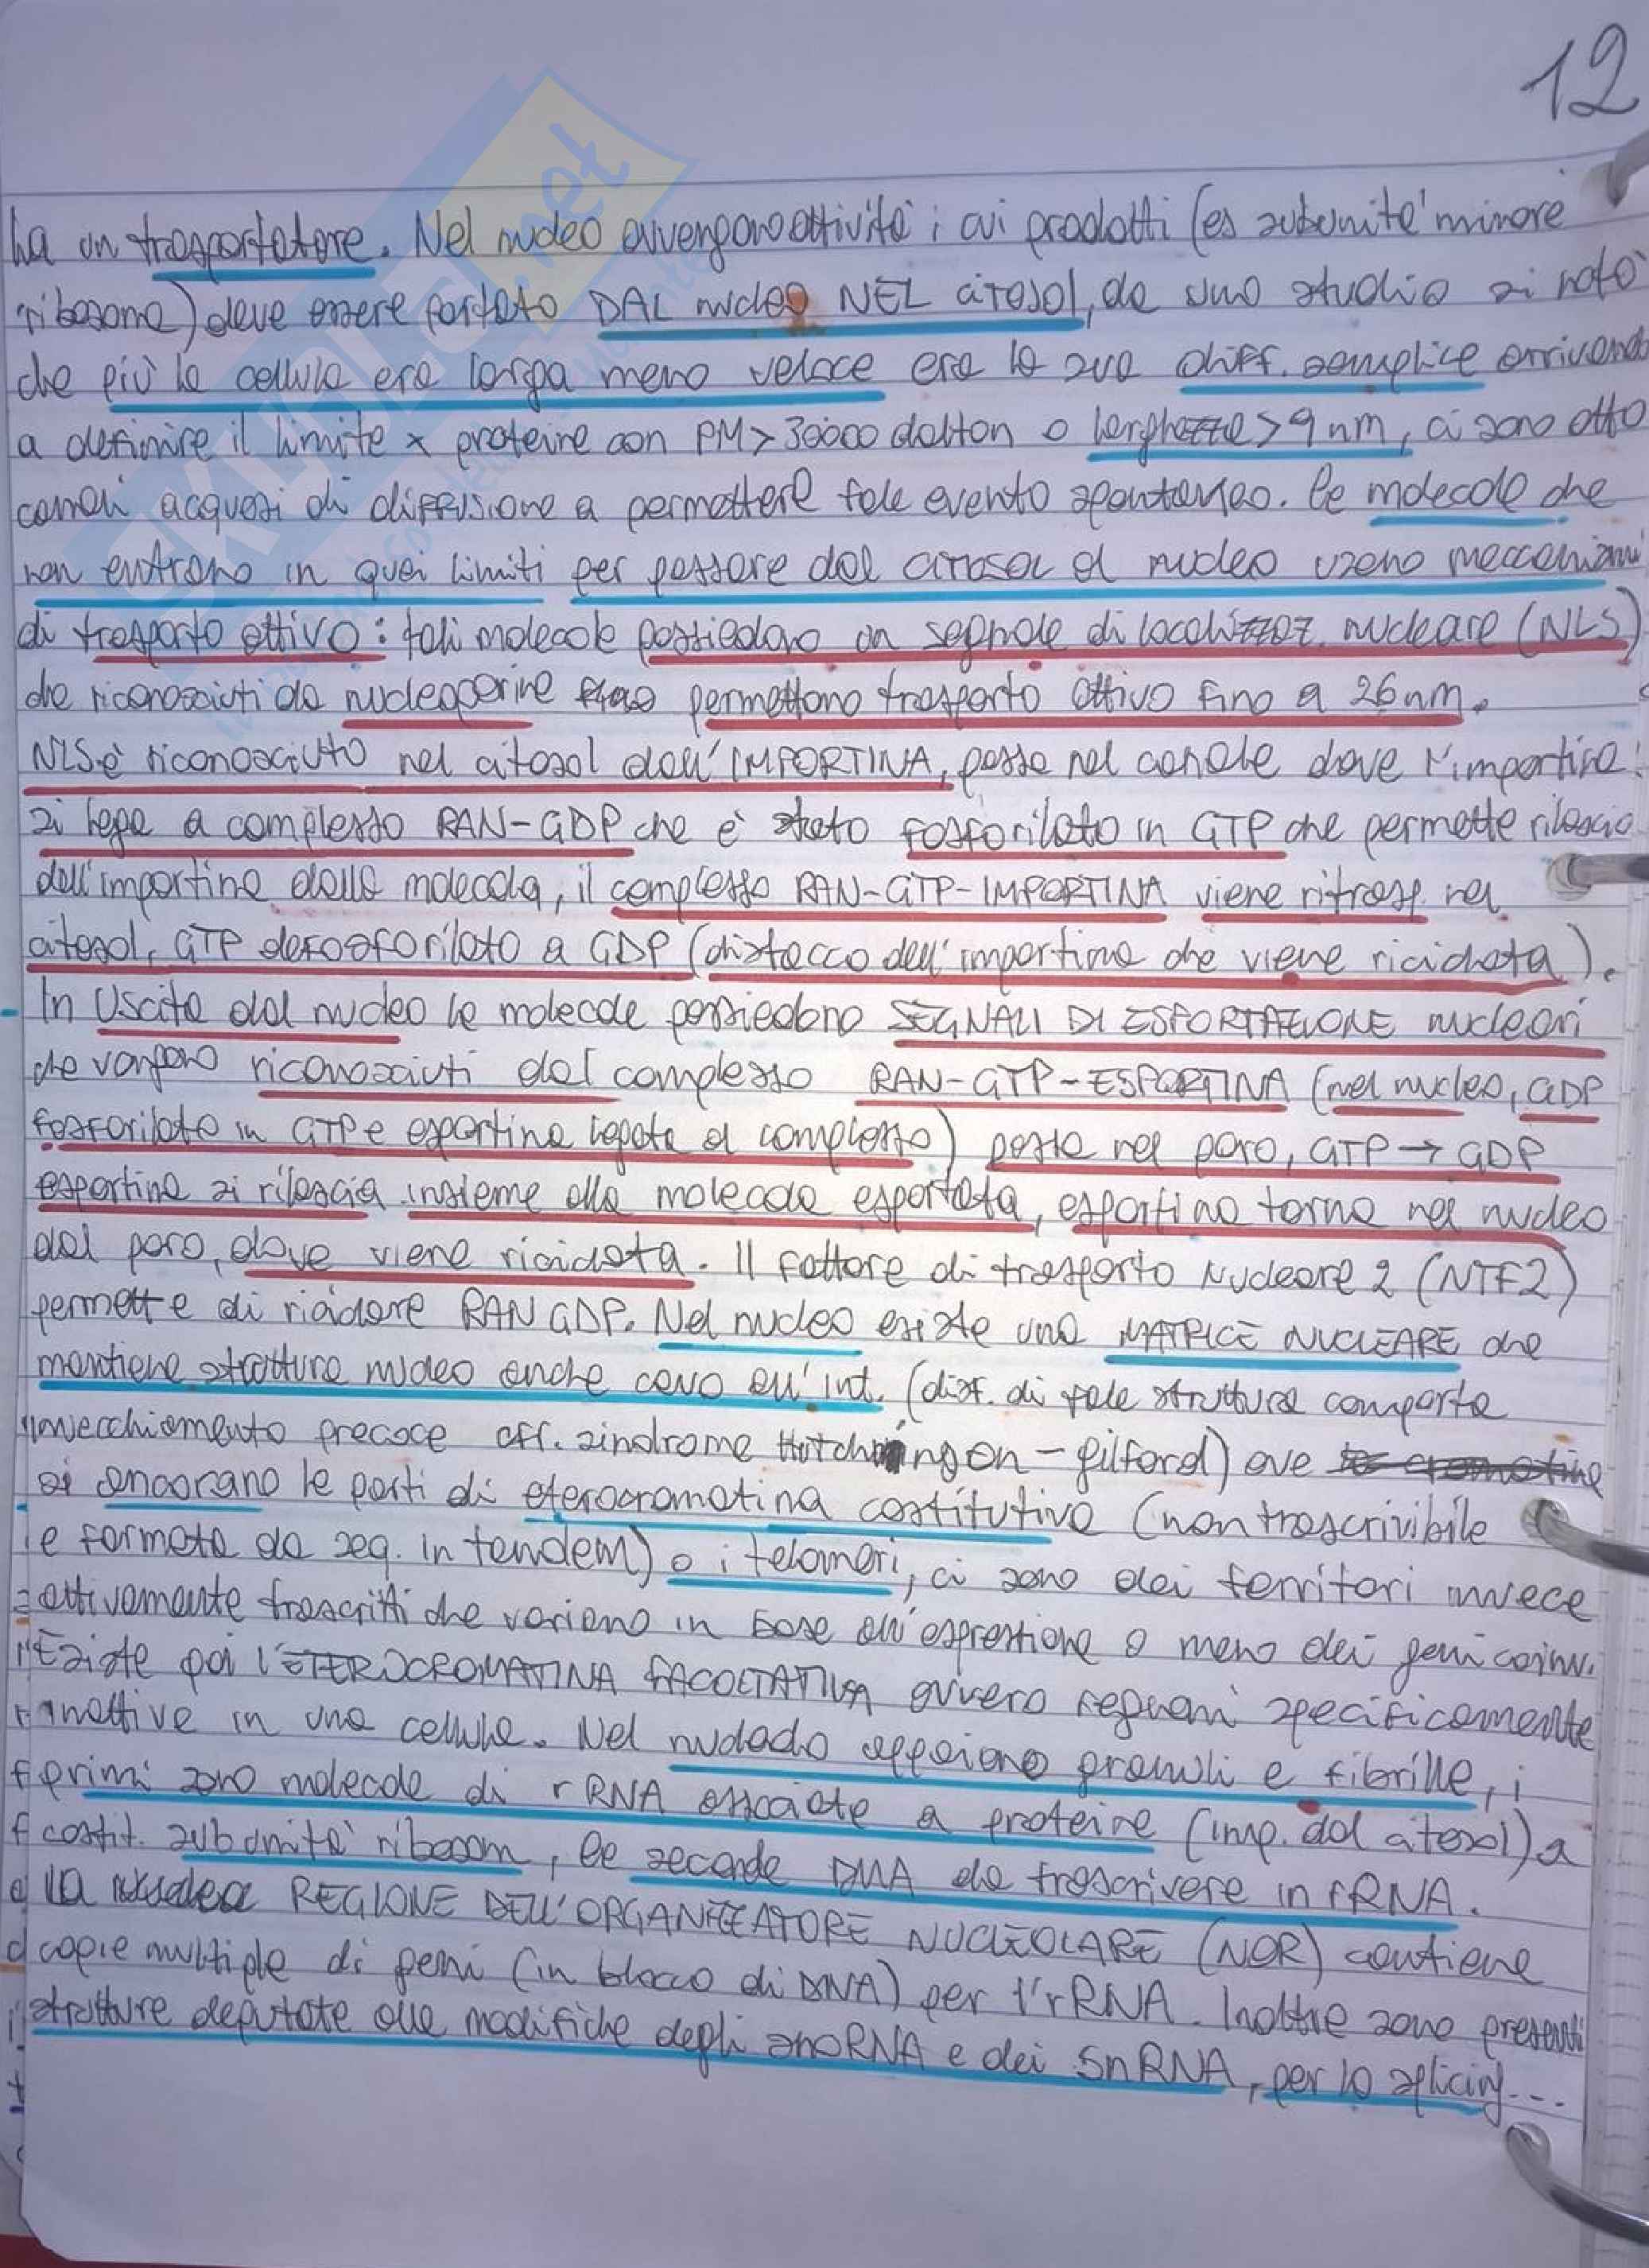 12
ha un trasportatore. Nel nucleo avvengono attività i cui prodotti (es subunità minore
ribosoma) deve essere portato DAL nucleo NEL citosol, da uno studio si notò
che più la cellula era larga meno veloce era la sua diff. semplice arrivando
a definire il limite x proteine con PM > 30000 dalton o larghezze > 9 nm, ci sono otto
canali acquosi di diffusione a permettere tale evento spontaneo. Le molecole che
non entrano in quei limiti per passare dal citosol al nucleo usano meccanismi
di trasporto attivo: tali molecole possiedono un segnale di localizzaz. nucleare (NLS)
che riconosciuti da nucleoporine permettono trasporto attivo fino a 26 nm.
NLS è riconosciuto nel citosol dall'IMPORTINA, passa nel canale dove l'importina
si lega a complesso RAN-GDP che è stato fosforilato in GTP che permette rilascio
dell'importina dalla molecola, il complesso RAN-GTP-IMPORTINA viene ritrasp. nel
citosol, GTP defosforilato a GDP (distacco dell'importina che viene riciclata).
In uscita dal nucleo le molecole possiedono SEGNALI DI ESPORTAZIONE nucleari
che vengono riconosciuti dal complesso RAN-GTP-ESPORTINA (nel nucleo, GDP
fosforilato in GTP e esportina legata al complesso) passa nel poro, GTP → GDP
esportina si rilascia insieme alla molecola esportata, esportina torna nel nucleo
dal poro, dove viene riciclata. Il fattore di trasporto Nucleare 2 (NTF2)
permette di riciclare RAN GDP. Nel nucleo esiste una MATRICE NUCLEARE che
mantiene struttura nucleo anche cavo all'int. (disf. di tale struttura comporta
invecchiamento precoce aff. sindrome Hutchingon - gilford) ove
si ancorano le parti di eterocromatina costitutiva (non trascrivibile
e formata da seq. in tandem) o i telomeri, ci sono dei territori invece
attivamente trascritti che variano in base all'espressione o meno dei geni coinv.
Esiste poi l'ETEROCROMATINA FACOLTATIVA ovvero regioni specificamente
inattive in una cellula. Nel nucleolo appaiono granuli e fibrille, i
primi sono molecole di rRNA associate a proteine (imp. dal citosol) a
costit. subunità ribosom, le seconde DNA da trascrivere in rRNA.
La REGIONE DELL'ORGANIZZATORE NUCLEOLARE (NOR) contiene
copie multiple di geni (in blocco di DNA) per l'rRNA. Inoltre sono presenti
strutture deputate alle modifiche degli snoRNA e dei SnRNA, per lo splicing...